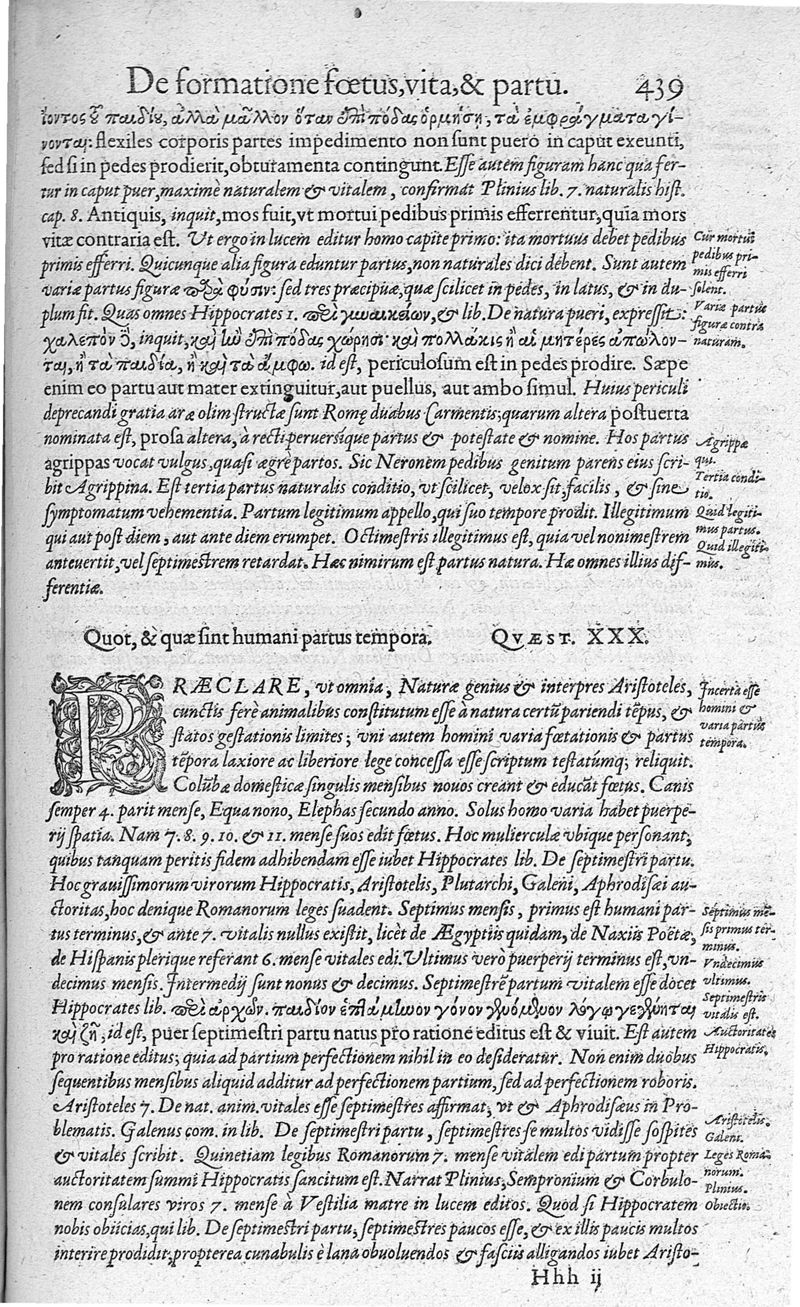 De formatione fœtus, vita, & partu. 439
ἰόντος τοῦ παιδίου, ἀλλὰ μᾶλλον ὅταν ἐπὶ πόδας ὁρμήσῃ, τὰ ἐμφράγματα γί-
νονται: flexiles corporis partes impedimento non sunt puero in caput exeunti,
sed si in pedes prodierit, obturamenta contingunt. Esse autem figuram hanc qua fer-
tur in caput puer, maximè naturalem & vitalem, confirmat Plinius lib. 7. naturalis hist.
cap. 8. Antiquis, inquit, mos fuit, vt mortui pedibus primis efferrentur, quia mors
vitæ contraria est. Vt ergo in lucem editur homo capite primo: ita mortuus debet pedibus
primis efferri. Quicunque alia figura eduntur partus, non naturales dici debent. Sunt autem
variæ partus figuræ παρὰ φύσιν: sed tres præcipuæ, quæ scilicet in pedes, in latus, & in du-
plum fit. Quas omnes Hippocrates 1. περὶ γυναικείων, & lib. De natura pueri, expressit:
χαλεπὸν δὲ, inquit, καὶ ἢν ἐπὶ πόδας χωρήσῃ· καὶ πολλάκις ἢ αἱ μητέρες ἀπώλον-
ται, ἢ τὰ παιδία, ἢ καὶ τὰ ἄμφω. id est, periculosum est in pedes prodire. Sæpe
enim eo partu aut mater extinguitur, aut puellus, aut ambo simul. Huius periculi
deprecandi gratia aræ olim structæ sunt Romę duabus Carmentis; quarum altera postuerta
nominata est, prosa altera, à recti peruersique partus & potestate & nomine. Hos partus
agrippas vocat vulgus, quasi ægrè partos. Sic Neronem pedibus genitum parens eius scri-
bit Agrippina. Est tertia partus naturalis conditio, vt scilicet, velox sit, facilis, & sine
symptomatum vehementia. Partum legitimum appello, qui suo tempore prodit. Illegitimum
qui aut post diem, aut ante diem erumpet. Octimestris illegitimus est, quia vel nonimestrem
anteuertit, vel septimestrem retardat. Hæc nimirum est partus natura. Hæ omnes illius dif-
ferentiæ.
Cur mortui
pedibus pri-
mis efferri
solent.
Variæ partus
figuræ contra
naturam.
Agrippæ
qui.
Tertia condi-
tio.
Quid legiti-
mus partus.
Quid illegiti-
mus.
Quot, & quæ sint humani partus tempora. QVÆST. XXX.
PRÆCLARE, vt omnia, Naturæ genius & interpres Aristoteles,
cunctis ferè animalibus constitutum esse à natura certũ pariendi tẽpus, &
statos gestationis limites; vni autem homini varia fœtationis & partus
tẽpora laxiore ac liberiore lege concessa esse scriptum testatúmq; reliquit.
Colũbæ domesticæ singulis mensibus nouos creant & educãt fœtus. Canis
semper 4. parit mense, Equa nono, Elephas secundo anno. Solus homo varia habet puerpe-
rij spatia. Nam 7. 8. 9. 10. & 11. mense suos edit fœtus. Hoc mulierculæ vbique personant,
quibus tanquam peritis fidem adhibendam esse iubet Hippocrates lib. De septimestri partu.
Hoc grauissimorum virorum Hippocratis, Aristotelis, Plutarchi, Galeni, Aphrodisæi au-
ctoritas, hoc denique Romanorum leges suadent. Septimus mensis, primus est humani par-
tus terminus, & ante 7. vitalis nullus existit, licèt de Ægyptiis quidam, de Naxiis Poëtæ,
de Hispanis plerique referant 6. mense vitales edi. Vltimus verò puerperij terminus est, vn-
decimus mensis. Intermedij sunt nonus & decimus. Septimestrẽ partum vitalem esse docet
Hippocrates lib. περὶ ἀρχῶν. παιδίον ἑπτάμηνον γόνον γενόμενον λόγῳ γεγένηται
καὶ ζῇ; id est, puer septimestri partu natus pro ratione editus est & viuit. Est autem
pro ratione editus; quia ad partium perfectionem nihil in eo desideratur. Non enim duobus
sequentibus mensibus aliquid additur ad perfectionem partium, sed ad perfectionem roboris.
Aristoteles 7. De nat. anim. vitales esse septimestres affirmat, vt & Aphrodisæus in Pro-
blematis. Galenus com. in lib. De septimestri partu, septimestres se multos vidisse sospites
& vitales scribit. Quinetiam legibus Romanorum 7. mense vitalem edi partum propter
auctoritatem summi Hippocratis sancitum est. Narrat Plinius, Sempronium & Corbulo-
nem consulares viros 7. mense à Vestilia matre in lucem editos. Quod si Hippocratem
nobis obiicias, qui lib. De septimestri partu, septimestres paucos esse, & ex illis paucis multos
interire prodidit, propterea cunabulis è lana obuoluendos & fasciis alligandos iubet Aristo-
Incerta esse
homini &
varia partus
tempora.
Septimus mẽ-
sis primus ter-
minus.
Vndecimus
vltimus.
Septimestris
vitalis est.
Auctoritates
Hippocratis.
Aristotelis.
Galeni.
Leges Roma-
norum.
Plinius.
Obiectio.
Hhh ij